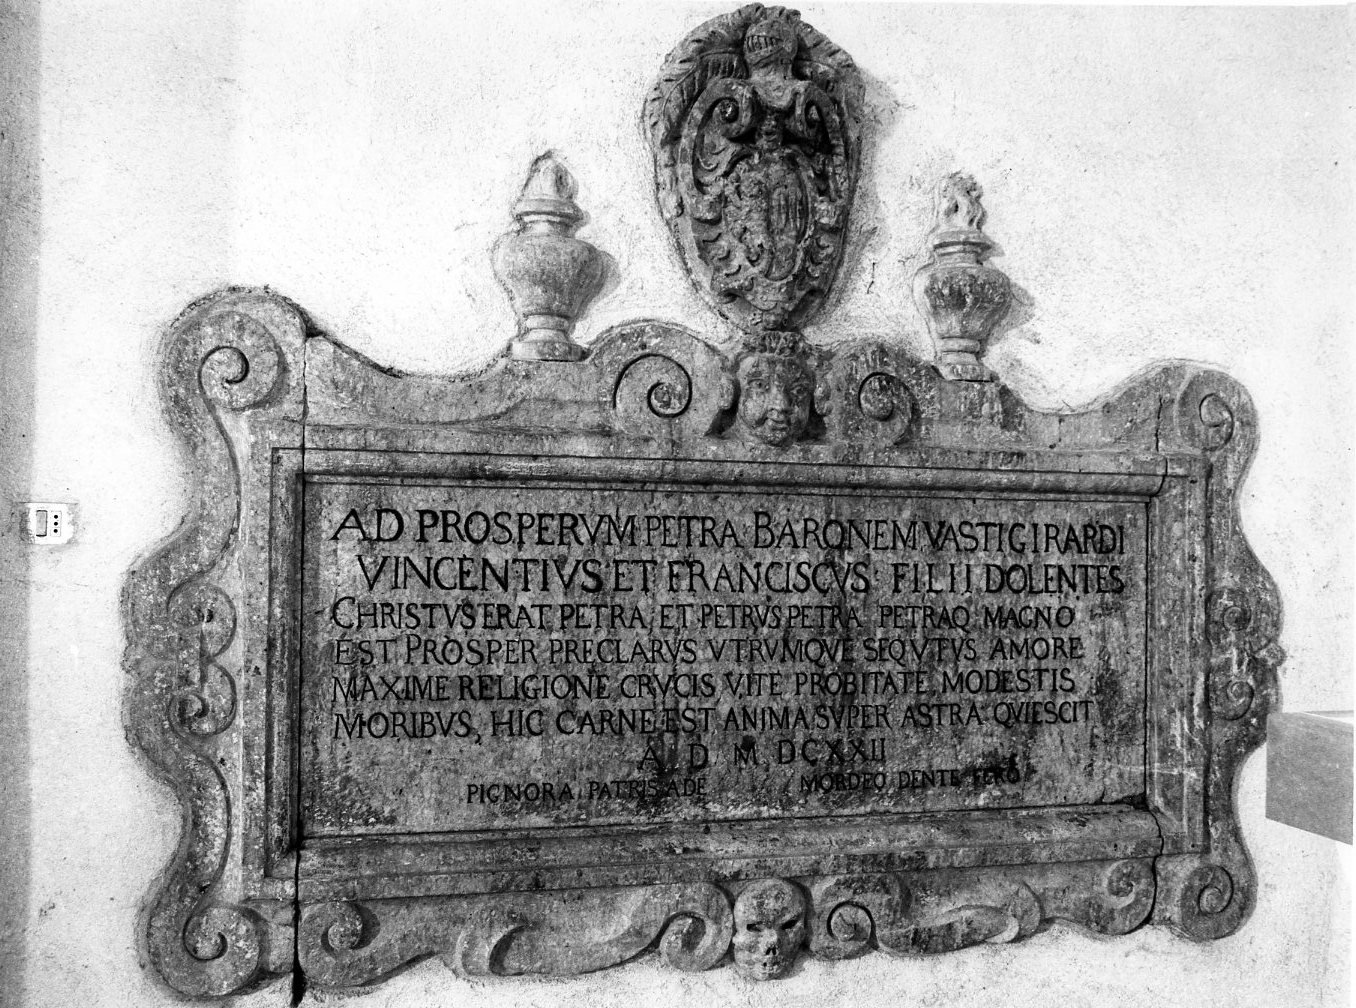 AD PROSPERVM PETRA BARONEM VASTIGIRARDI
VINCENTIVS ET FRANCISCVS FILII DOLENTES
CHRISTVS ERAT PETRA ET PETRVS PETRA PETRAQ MAGNO
EST PROSPER PRECLARVS VTRVMQVE SEQVTVS AMORE
MAXIME RELIGIONE CRVCIS VITE PROBITATE MODESTIS
MORIBVS, HIC CARNE EST, ANIMA SVPER ASTRA QVIESCIT
A D M DCXXII
PIGNORA PATRIS ADE MORDEO DENTE FERO